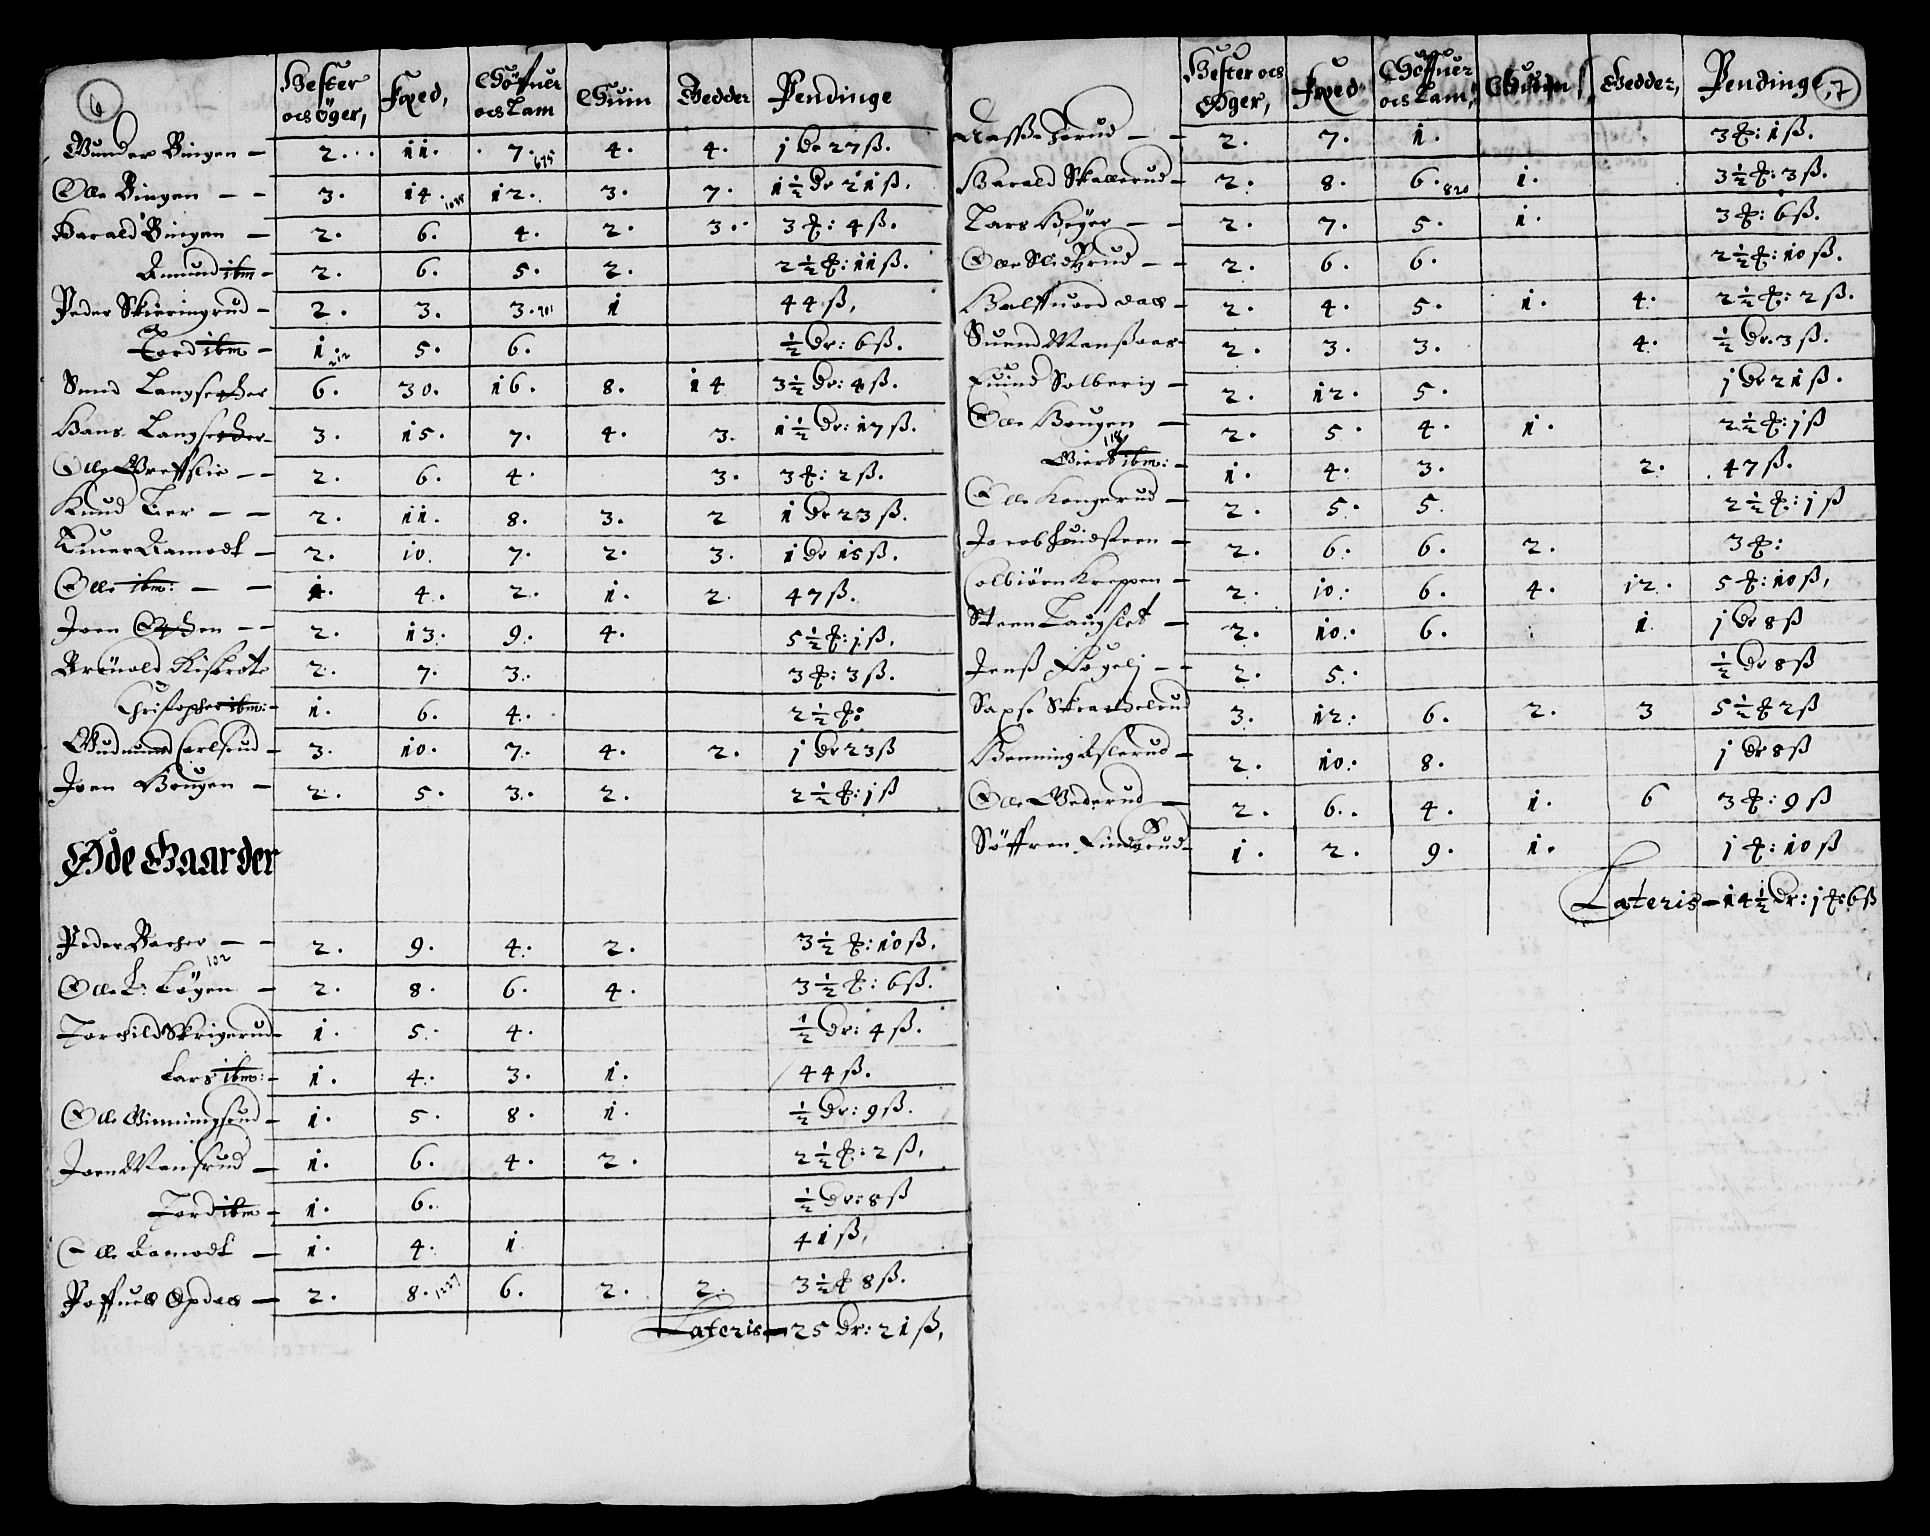 6
Hester ocs öger, Fæed, Söffuer ocs Lam Suin Gedder Pendinge
Gunder Bingen — 2. 11. 7. 675 4. 4. 1 Dr 27 ß.
Olle Bingen — — 3. 14. 12. 3. 7. 1½ Dr 21 ß.
Harald Bingen — 2. 6. 4. 2. 3. 3 ꝑ: 4 ß.
Amund ibm — 2. 6. 5. 2. 2½ ꝑ: 11 ß.
Peder Skieringrud — 2. 3. 3. 1 44 ß,
Tord ibm — 1. 212 5. 6. ½ Dr: 6 ß.
Suend Langsether 6. 30. 16. 8. 14 3½ Dr: 4 ß.
Hans Langsether — 3. 15. 7. 4. 3. 1½ Dr: 17 ß.
Olle Grefslie — — 2. 6. 4. 3. 3 ꝑ: 2 ß.
Knud Ber — — 2. 11. 8. 3. 2 1 Dr 23 ß.
Aamodt — 2. 10. 7. 2. 3. 1 Dr 15 ß.
Olle ibm: — — 1. 4. 2. 1. 2. 47 ß.
Joen — — 2. 13. 9. 4. 5½ ꝑ: 1 ß.
2. 7. 3. 3 ꝑ: 3 ß.
Christopher ibm: — 1. 6. 4. 2½ ꝑ:
Gudmund Carlsrud — 3. 10. 7. 4. 2. 1 Dr 23 ß
Joen Hougen — 2. 5. 3. 2. 2½ ꝑ: 1 ß
Øde Gaarder
Peder Bacher — — 2. 9. 4. 2. 3½ ꝑ: 10 ß.
102
Olle Løgen — 2. 8. 6. 4. 3½ ꝑ: 6 ß.
Torchild Skrigerud — 1. 5. 4. ½ Dr: 4 ß.
Lars ibm: — 1. 4. 3. 1. 44 ß.
Olle — 1. 5. 8. 1. ½ Dr: 9 ß.
Joen — 1. 6. 4. 2. 2½ ꝑ: 2 ß,
Tord ibm — 1. 6. ½ Dr: 8 ß
Olle Aamodt — 1. 4. 1 41 ß,
Opdal — 2. 8. 1227 6. 2. 2. 3½ ꝑ 8 ß.
Lateris — 25 Dr: 21 ß,
Hester ocs Øger, Fæed Söffuer ocs Lam, Suin Gedder, Pendinge, 7
Aasse — — 2. 7. 1. 3 ꝑ: 1 ß.
Harald Skallerud — 2. 8. 6. 820 1. 3½ ꝑ: 3 ß.
Lars Høyer — — 2. 7. 5. 1. 3 ꝑ: 6 ß.
Olle — — 2. 6. 6. 2½ ꝑ: 10 ß.
Halffuord Daas — 2. 4. 5. 1. 4. 2½ ꝑ: 2 ß.
Suend — 2. 3. 3. 4. ½ Dr. 3 ß.
Euind Solberig — 2. 12. 5. 1 Dr 21 ß.
Olle Hougen — 2. 5. 4. 1. 2½ ꝑ: 1 ß
118
ibm: — 1. 4. 3. 2. 47 ß.
Olle Kongerud — 2. 5. 5. 2½ ꝑ: 1 ß
Jacob Huidsteen — 2. 6. 6. 2. 3 ꝑ:
Colbiörn Kreppen — 2. 10. 6. 4. 12. 5 ꝑ: 10 ß,
Steen Laugslet — 2. 10. 6. 1 1 Dr 8 ß
Jenß Fogelj — — 2. 5. ½ Dr 8 ß
3. 12. 6. 2. 3 5½ ꝑ 2 ß
Henning Eslerud — 2. 10. 8. 1 Dr 8 ß
Olle Wederud — 2. 6. 4. 1. 6 3 ꝑ: 9 ß
Söffren — 1. 2. 9. 1. 1 ꝑ: 10 ß
Lateris — 14½ Dr: 1 ꝑ: 6 ß